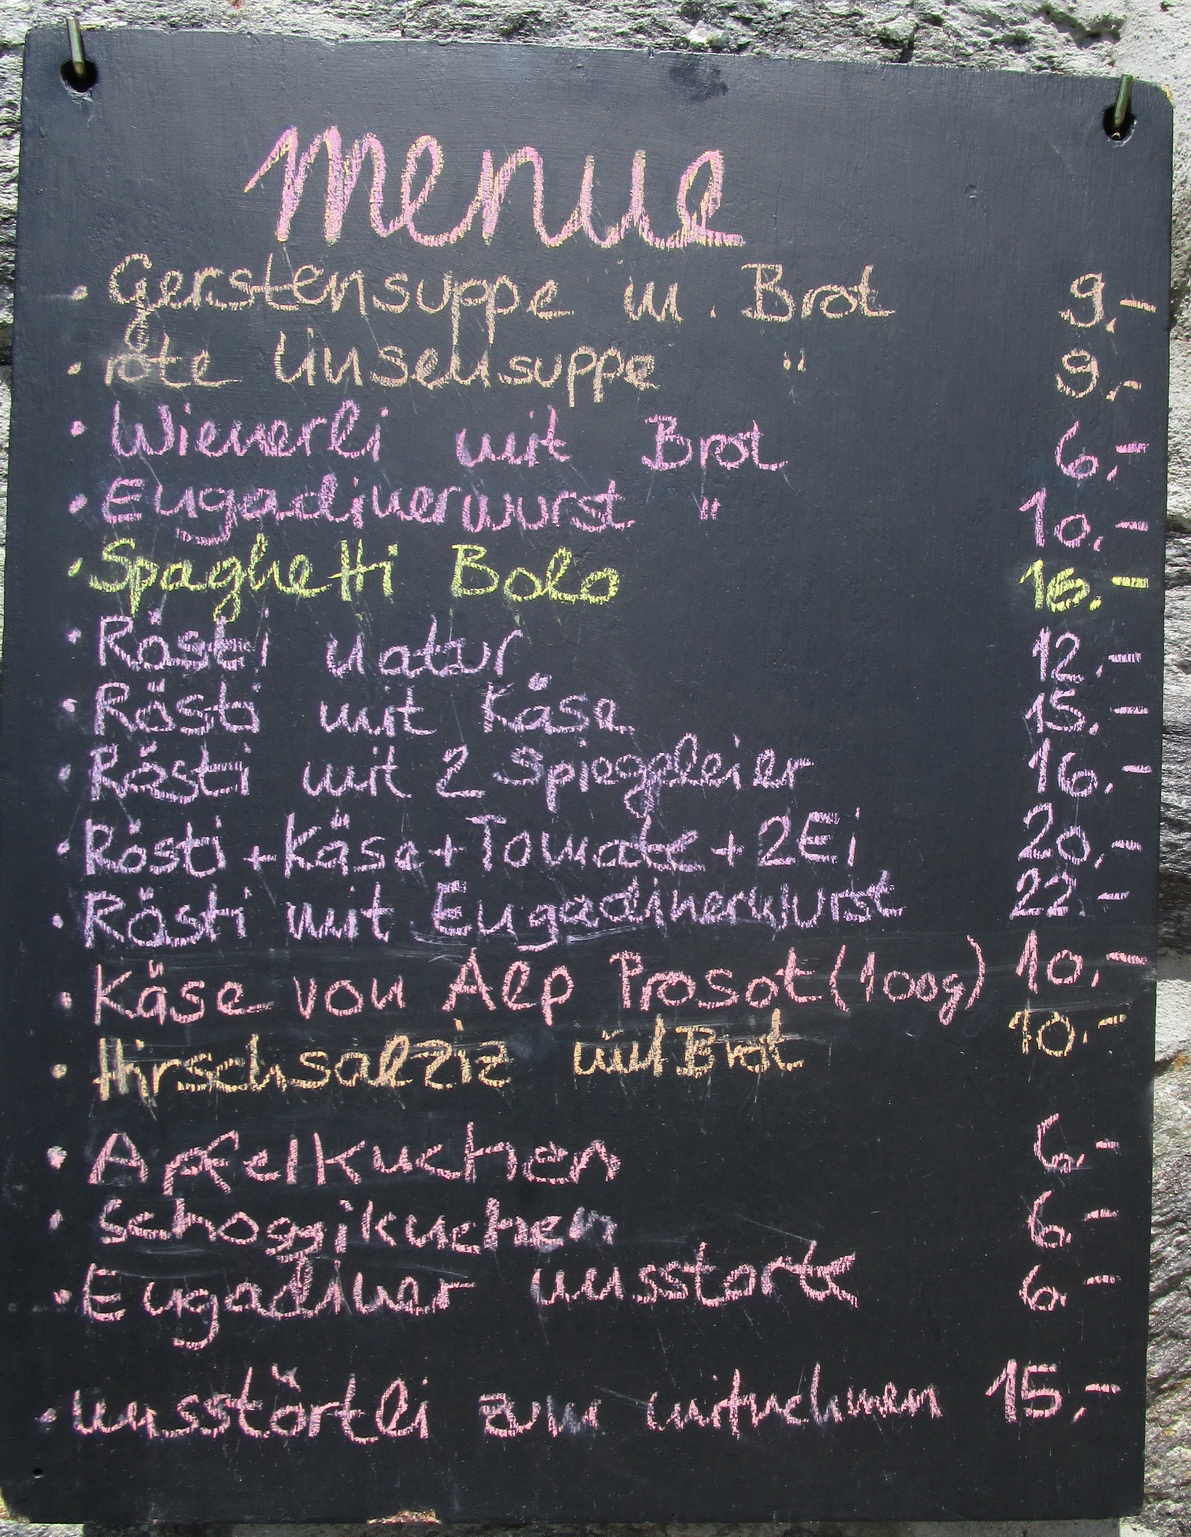 Menue
· Gerstensuppe m. Brot 9.-
· rote Linsensuppe " 9.-
· Wienerli mit Brot 6.-
· Engadinerwurst " 10.-
· Spaghetti Bolo 16.-
· Rösti natur 12.-
· Rösti mit Käse 15.-
· Rösti mit 2 Spiegeleier 16.-
· Rösti + Käse + Tomate + 2 Ei 20.-
· Rösti mit Engadinerwurst 22.-
· Käse von Alp Prosot (100g) 10.-
· Hirschsalziz mit Brot 10.-
· Apfelkuchen 6.-
· Schoggikuchen 6.-
· Engadiner nusstorte 6.-
· nusstörtli zum mitnehmen 15.-